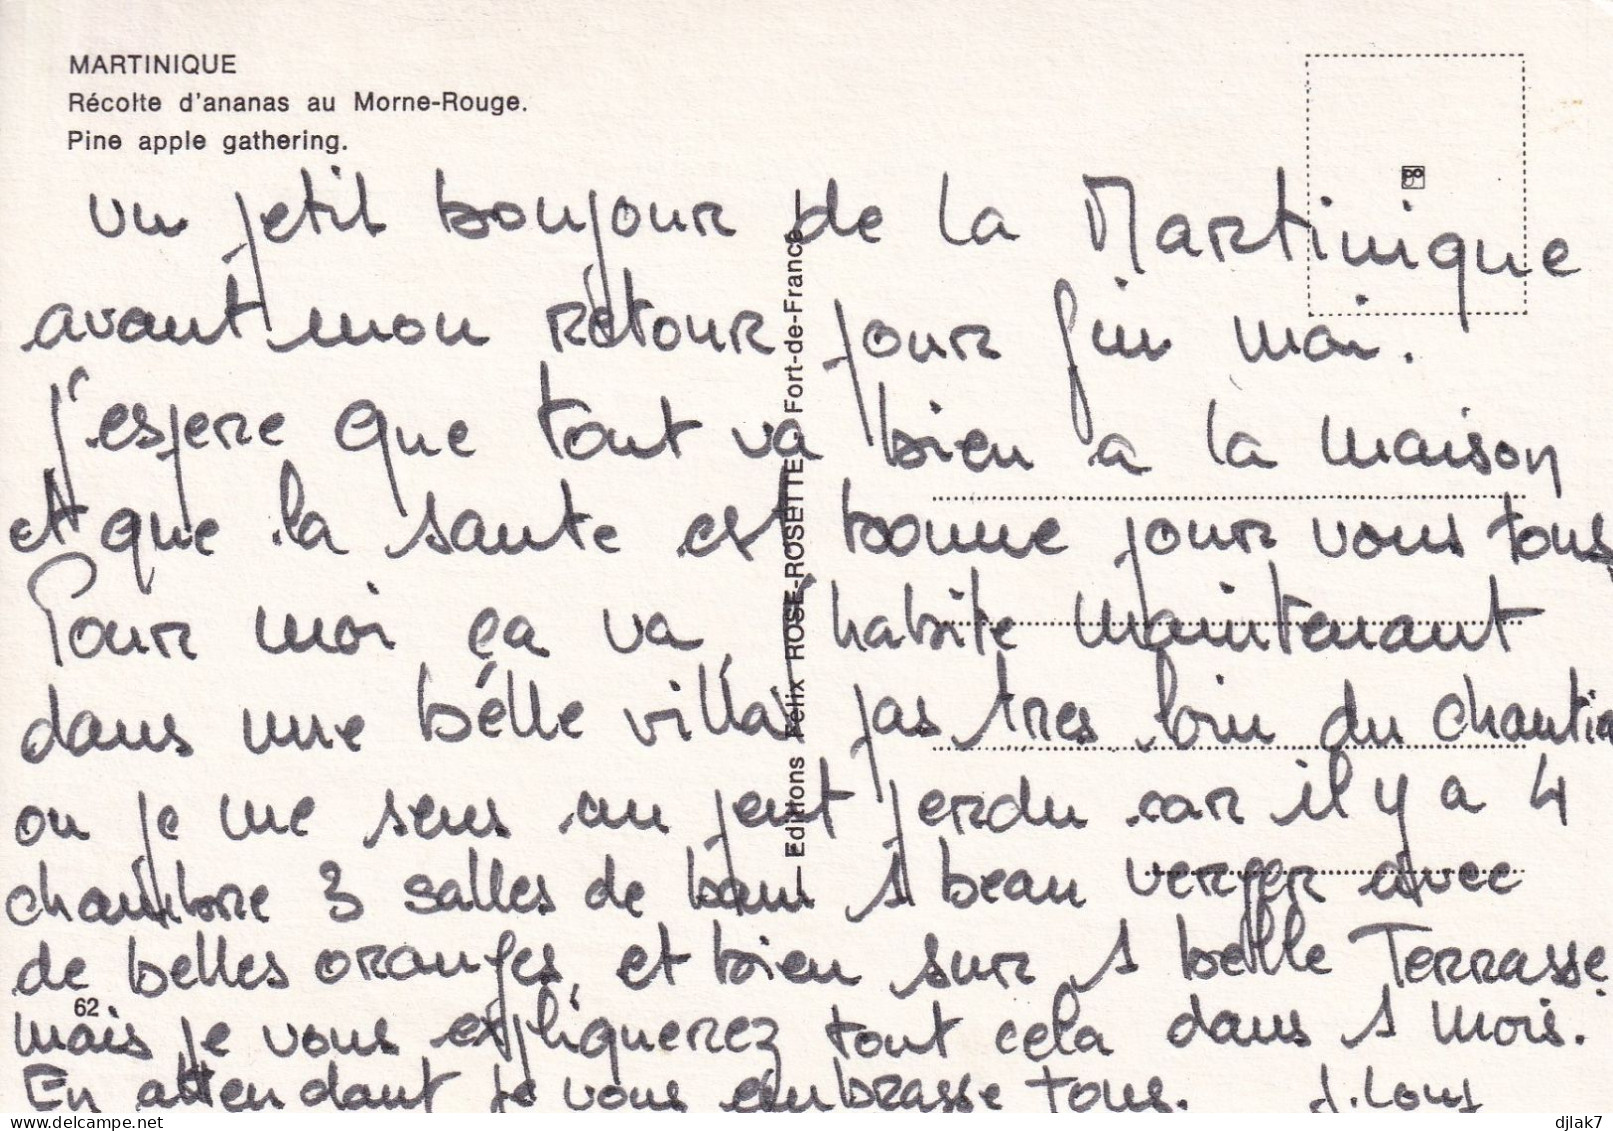 MARTINIQUE
Récolte d'ananas au Morne-Rouge.
Pine apple gathering.
un petit bonjour de la Martinique
avant mon rétour pour fin mai.
J'espere que tout va bien a la maison
et que la sante est bonne pour vous tous
Pour moi ça va, j'habite maintenant
dans une bélle villa pas tres loin du chantie
ou je me sens un peut perdu car il y a 4
chambre 3 salles de bain 1 beau verger avec
de belles oranges, et bien sur 1 belle Terrasse.
mais je vous expliquerez tout cela dans 1 mois.
En attendant je vous embrasse tous. J. Lous
Editions Felix ROSE-ROSETTE Fort-de-France
62
djlak7